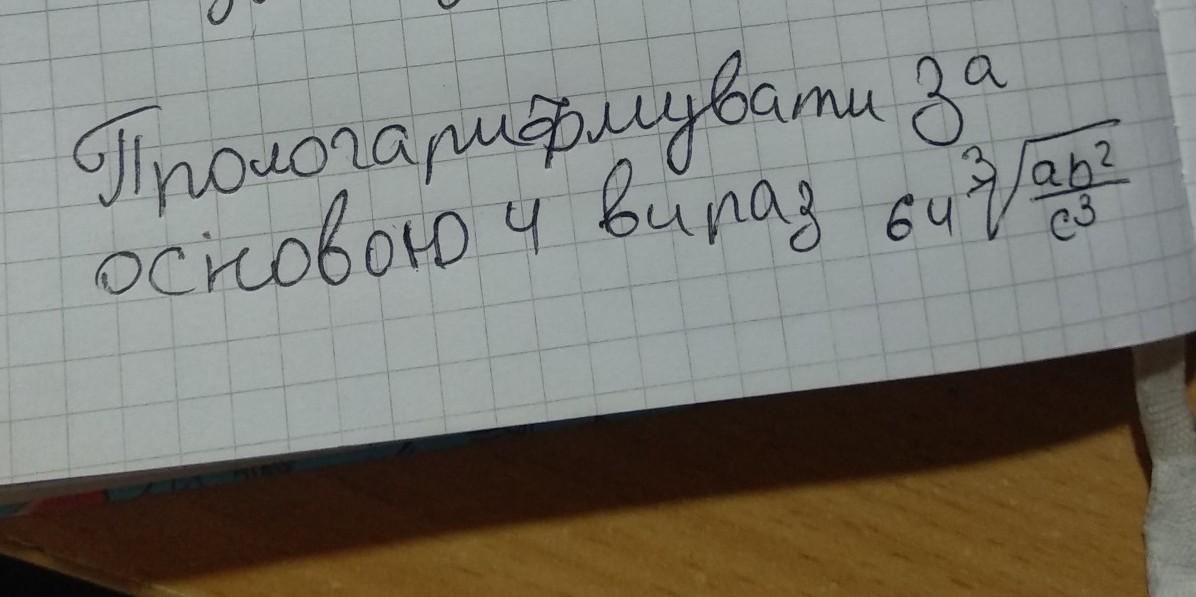 Прологарифмувати за
основою 4 вираз 64∛(ab²/c³)